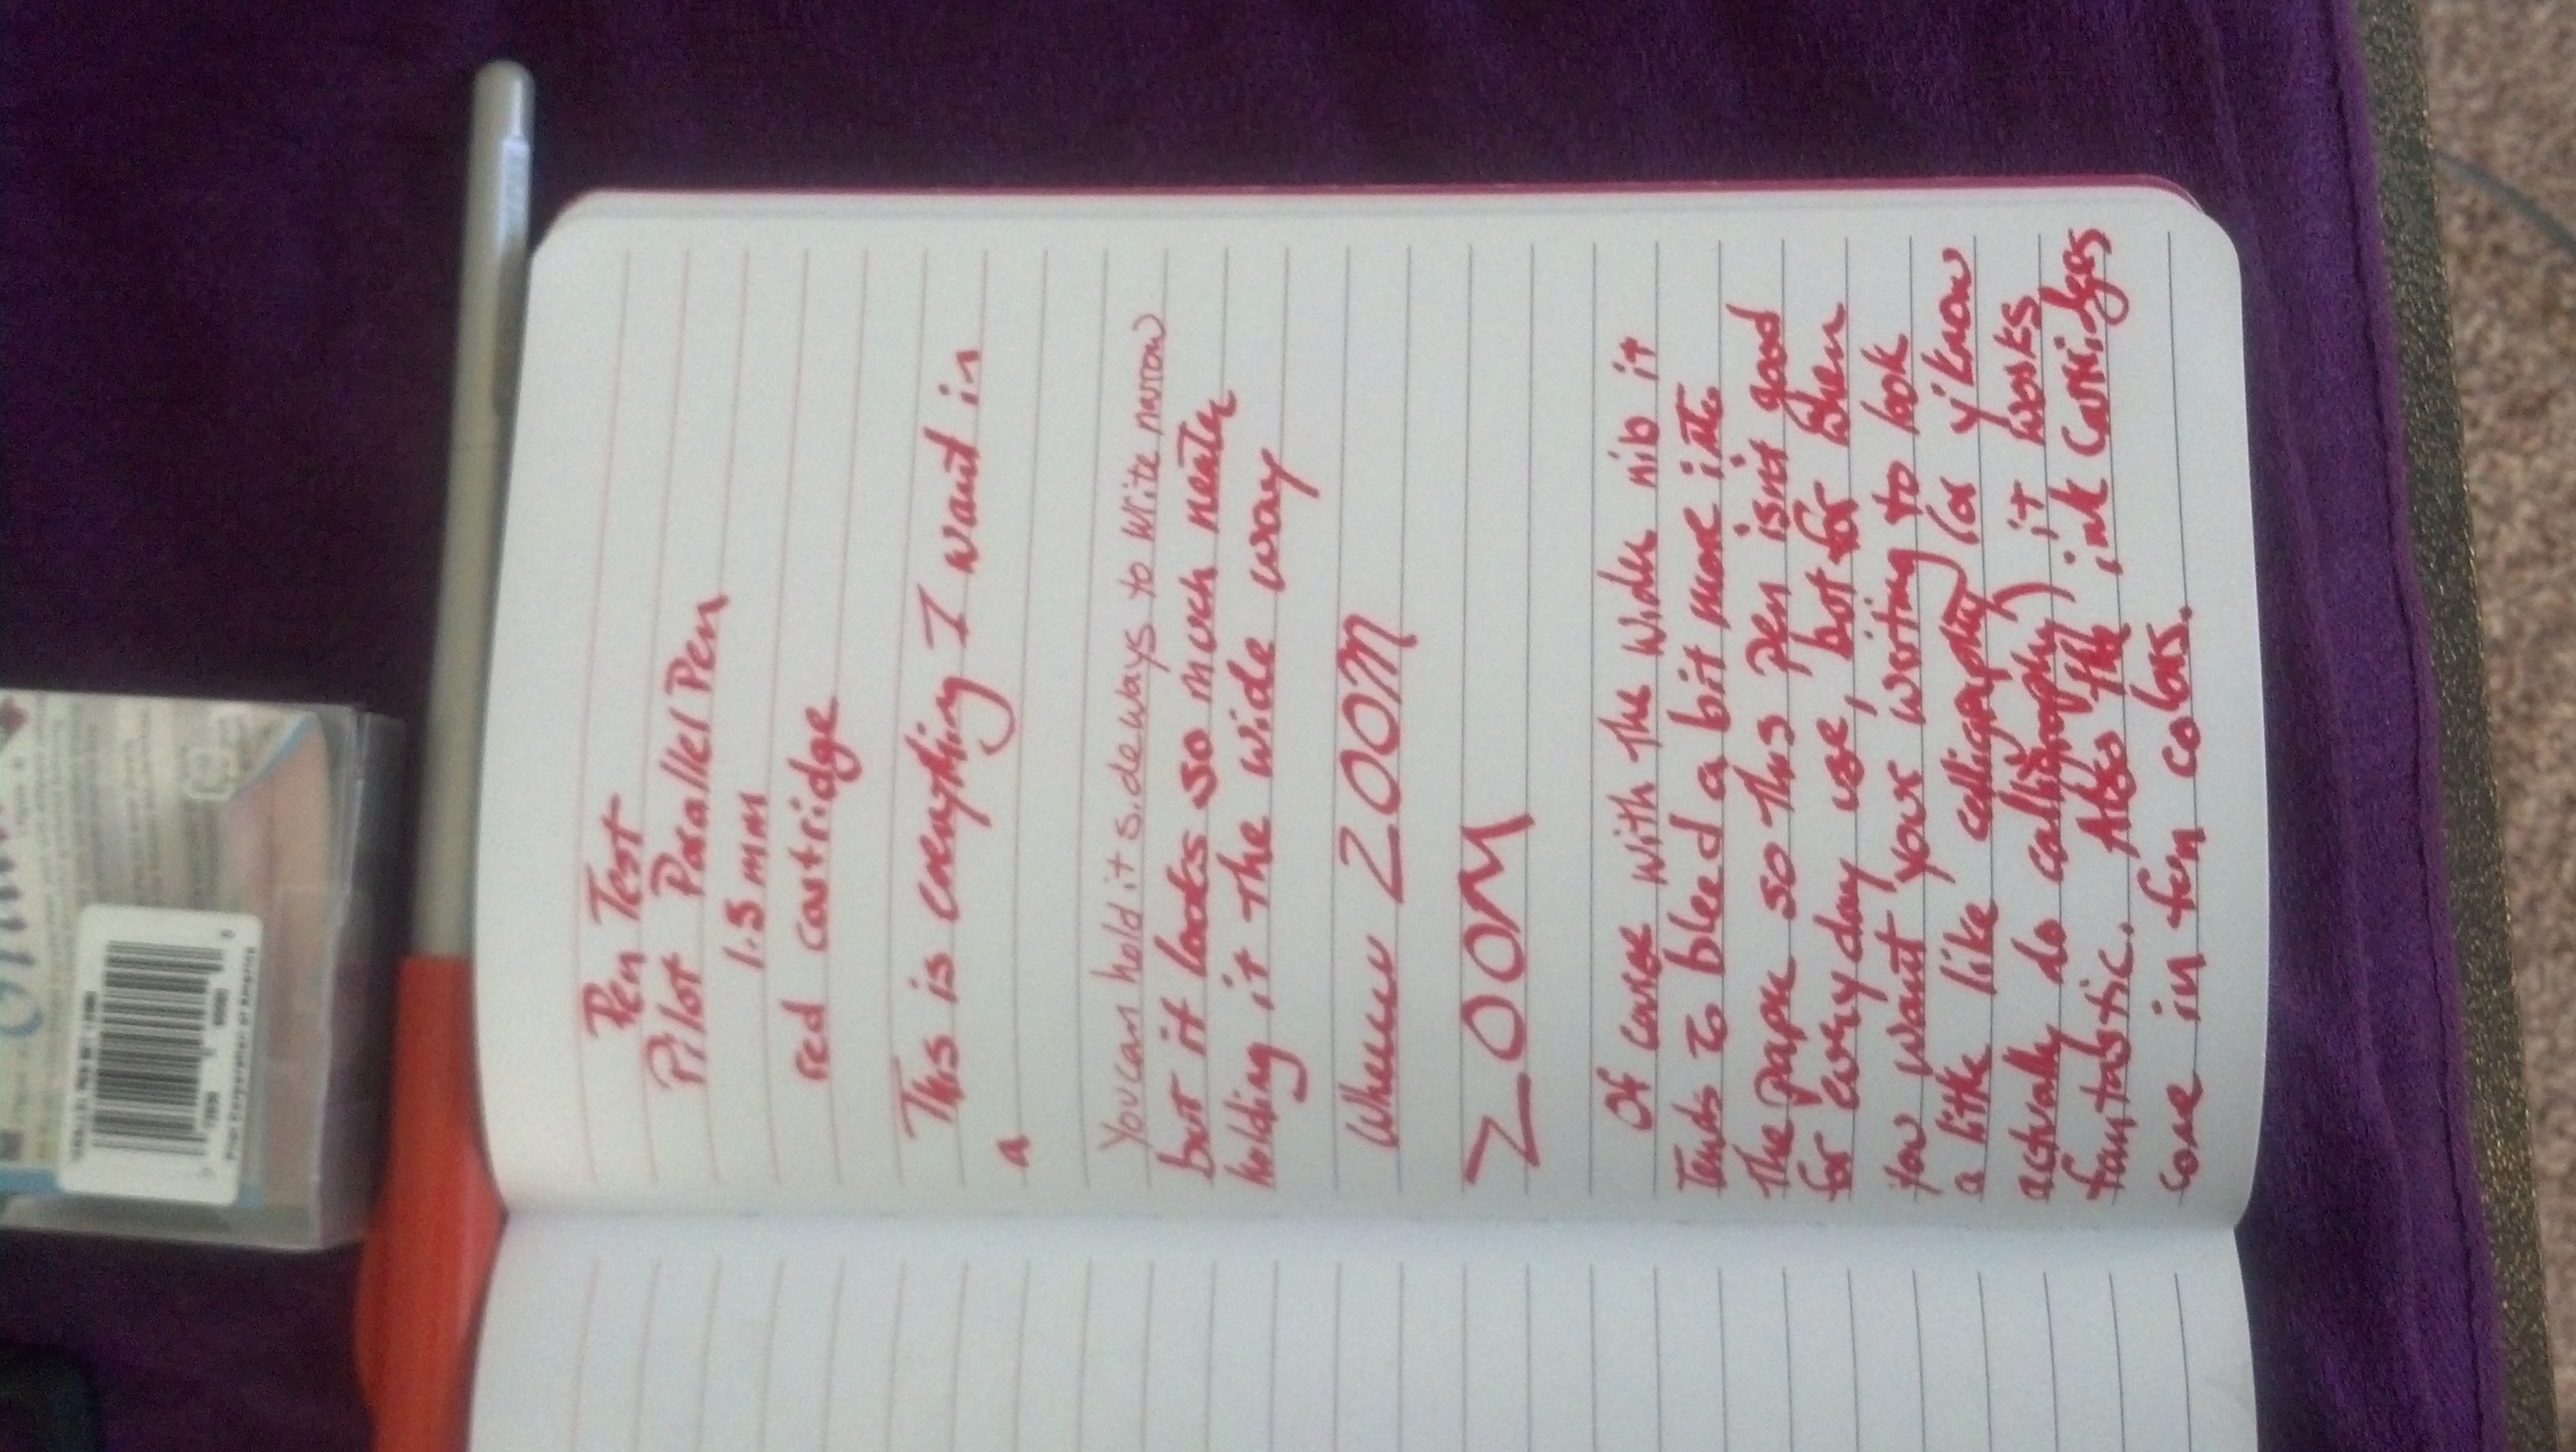 Pen Test
Pilot Parallel Pen
1.5 mm
red cartridge
This is everything I want in
a
You can hold it sideways to write narrow
but it looks so much neater
holding it the wide way
Wheeee ZOOM
ZOOM
Of course with the wider nib it
tends to bleed a bit more into
the paper so this pen isn't good
for every day use, but for when
you want your writing to look
a little like calligraphy (or y'know
actually do calligraphy) it works
fantastic. Also the ink cartridges
come in fun colors.